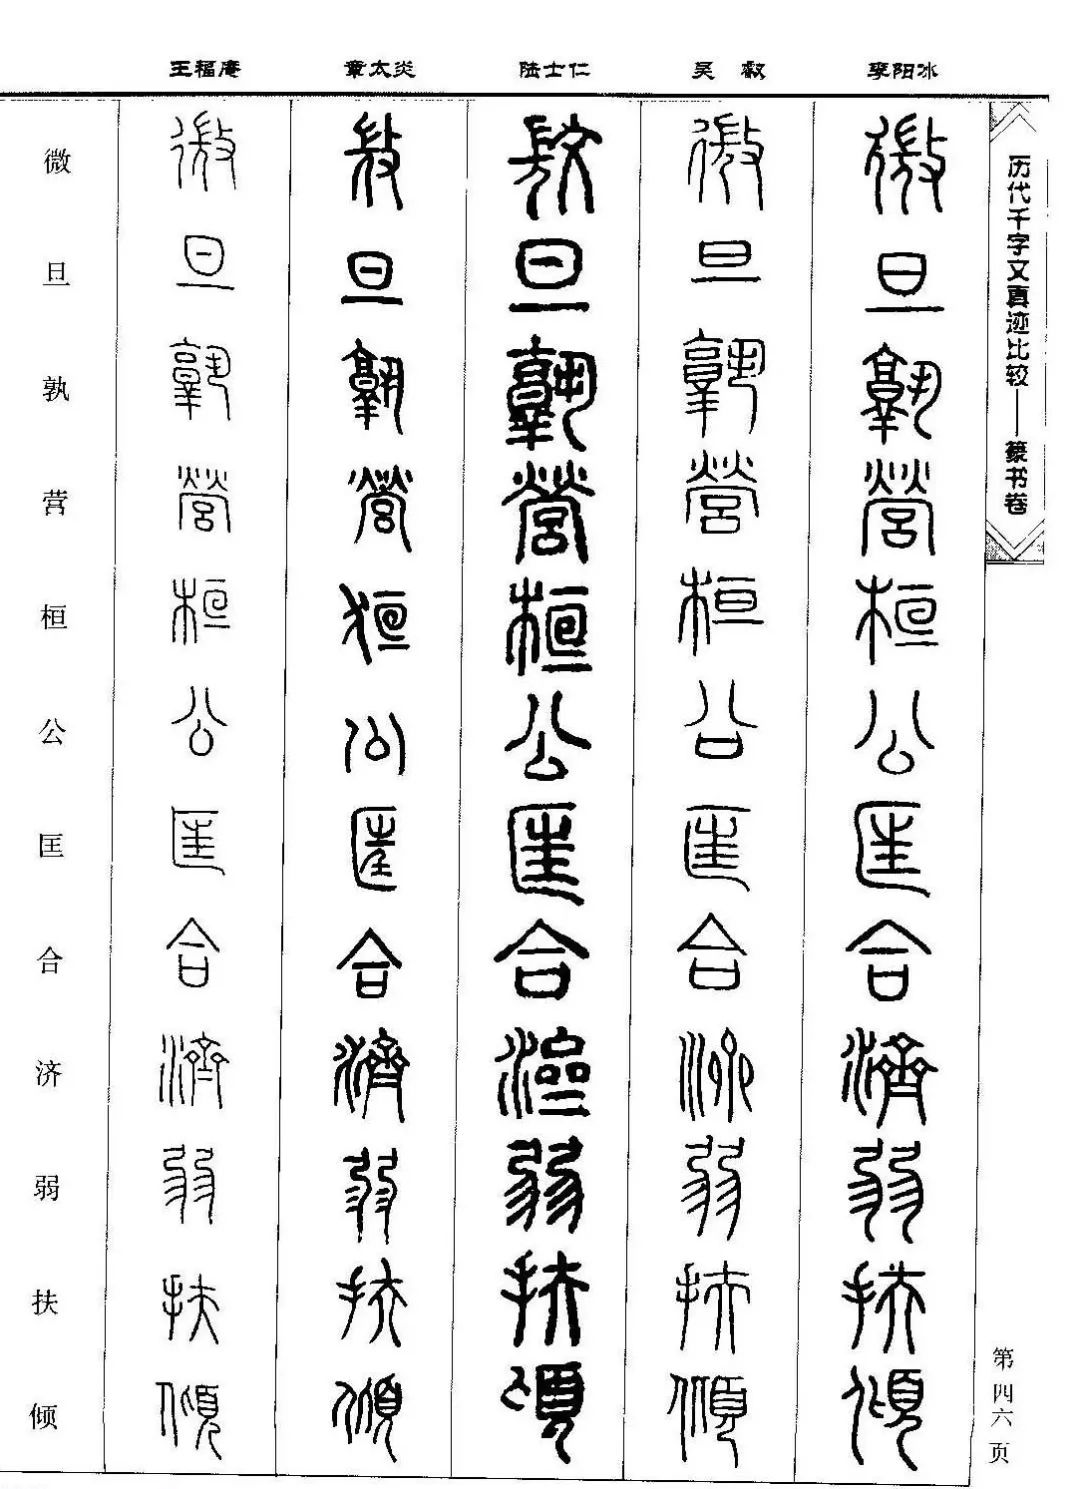 王福庵 章太炎 陆士仁 吴叡 李阳冰
历代千字文真迹比较——篆书卷
微旦孰營桓公匡合濟弱扶傾
微旦孰營桓公匡合濟弱扶傾
旦孰營桓公匡合弱扶頃
微旦孰營桓公匡合弱扶傾
微旦孰營桓公匡合濟弱扶傾
微旦孰营桓公匡合济弱扶倾
第四六页